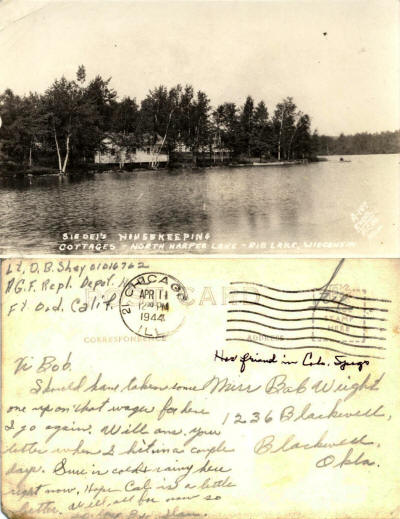 SIEDEL'S HOUSEKEEPING
COTTAGES - NORTH HARPER LAKE - RIB LAKE, WISCONSIN
Lt. O. B. Shay 01016762
A.G.F. Repl. Depot
Ft. Ord. Calif.
POST CARD
CHICAGO
APR 11
12 PM
1944
ILL
CORRESPONDENCE
STAMP
HERE
Her friend in Colo. Spngs
Hi Bob.
Should have taken some
one up on that wager for here
I go again. Will ans. your
letter when I hit in a couple
days. Sure is cold & rainy here
right now. Hope Cal. is a little
better. Well all for now so
Miss Bob Wright
1236 Blackwell,
Blackwell,
Okla.